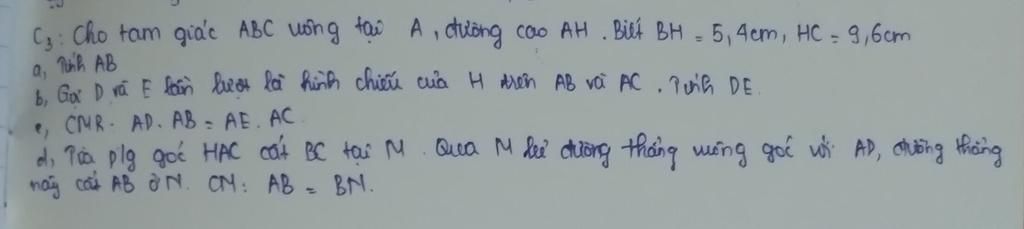 C₃: Cho tam giác ABC uông tại A, đường cao AH. Biết BH = 5,4cm, HC = 9,6cm
a, Tính AB
b, Gọi D và E lần lượt là hình chiếu của H trên AB và AC. Tính DE.
c, CMR. AD. AB = AE. AC
d, Tia p/g góc HAC cắt BC tại M. Qua M kẻ đường thẳng vuông góc với AD, đường thẳng
này cắt AB ở N. CM: AB = BN.